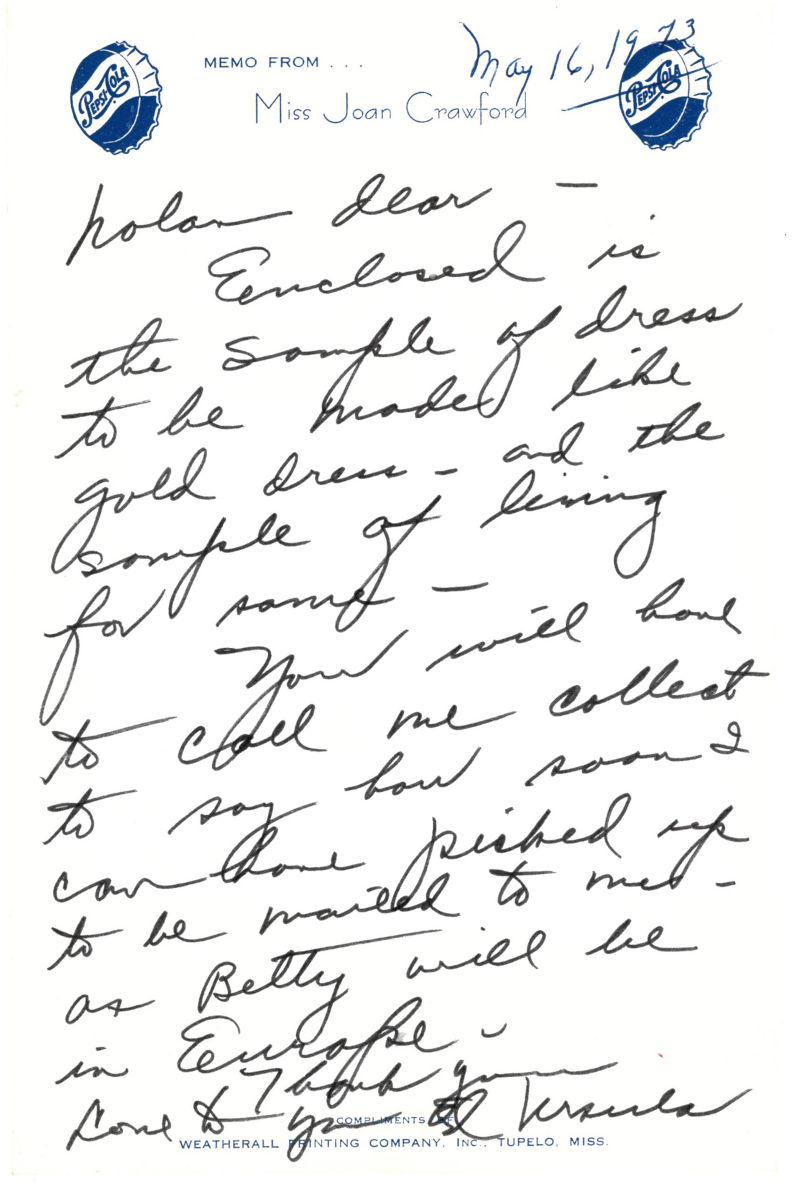 May 16, 1973
PEPSI-COLA
MEMO FROM . . .
PEPSI-COLA
Miss Joan Crawford
Nolan dear —
Enclosed is
the sample of dress
to be made like
gold dress - and the
sample of lining
for same —
You will have
to call me collect
to say how soon I
can have picked up
to be mailed to me -
as Betty will be
in Europe -
Thank you
Love to you & Ursula
COMPLIMENTS OF
WEATHERALL PRINTING COMPANY, INC., TUPELO, MISS.